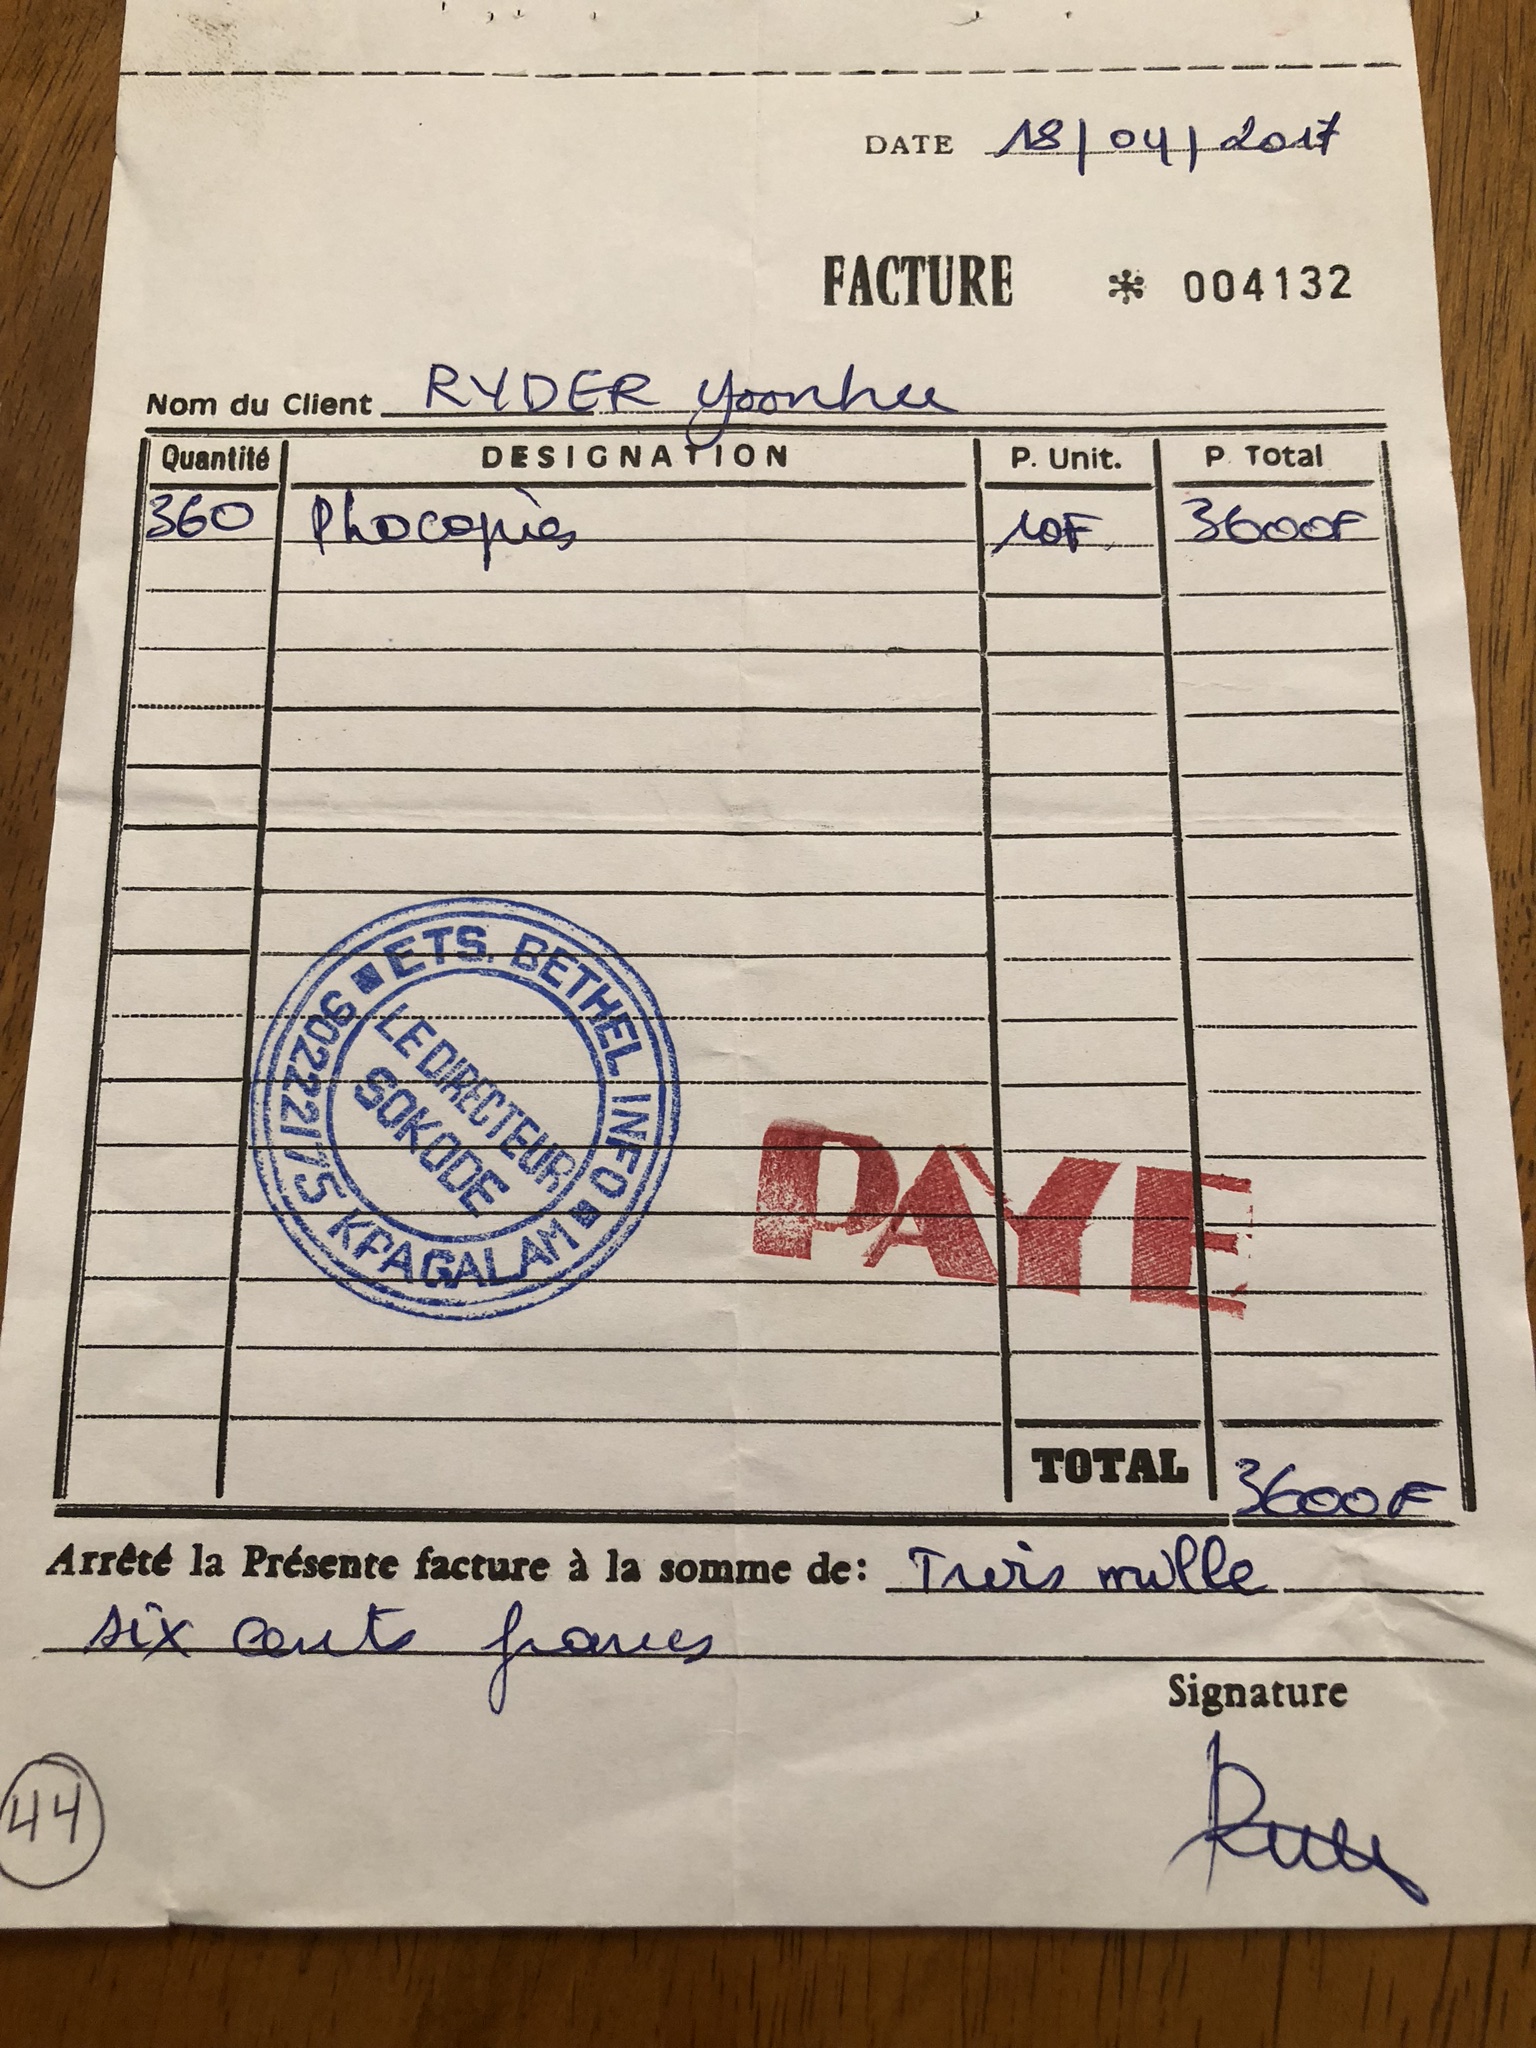 DATE 18/04/2017
FACTURE * 004132
Nom du Client RYDER Yoonhee
Quantité DESIGNATION P. Unit. P. Total
360 Phocopies 10F 3600F
ETS. BETHEL INFO
90222175 KPAGALAM
LE DIRECTEUR
SOKODE
PAYE
TOTAL 3600F
Arrêté la Présente facture à la somme de: Trois mille
six cents francs
Signature
44